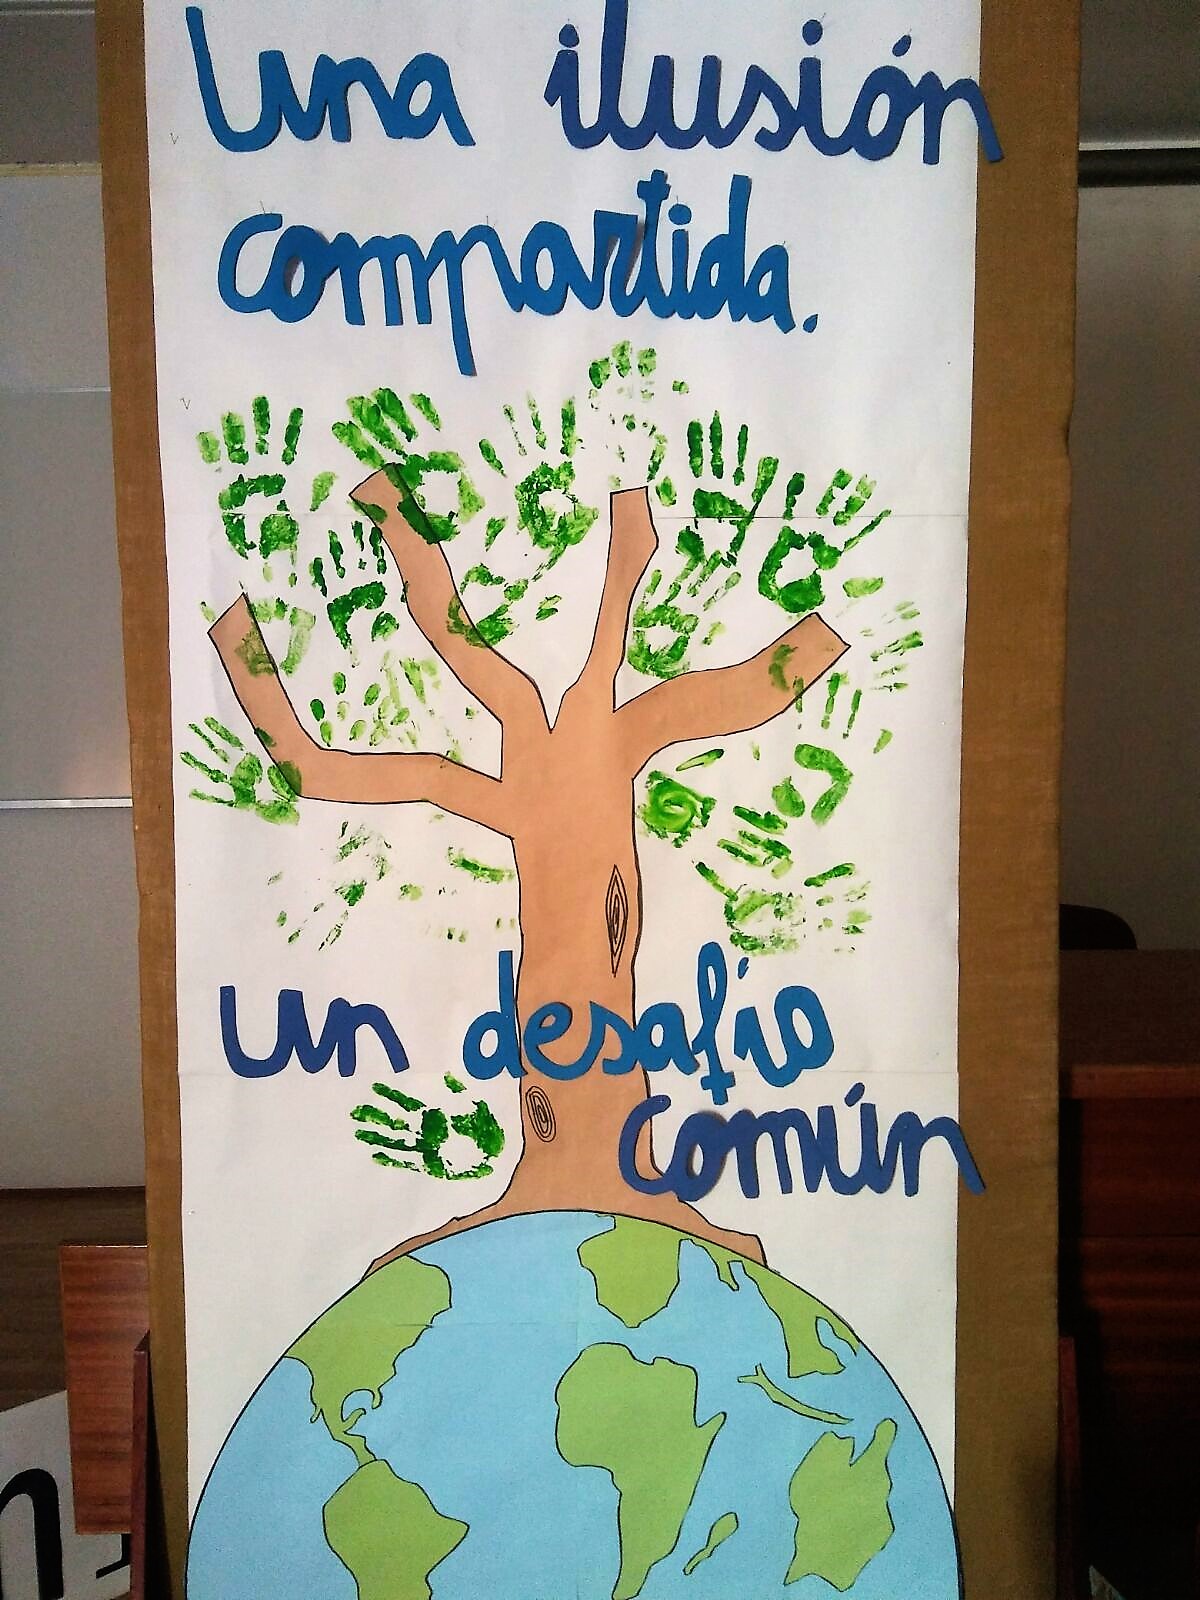 Una ilusión
compartida.
un desafío
común
n